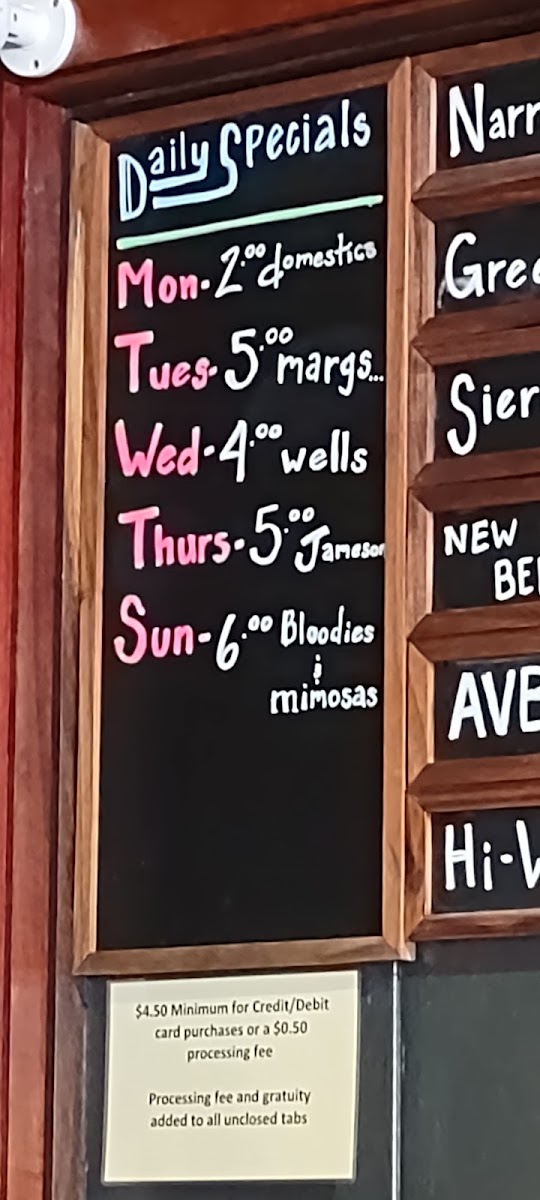 Daily Specials
Mon-2.00 domestics
Tues-5.00 margs...
Wed-4.00 wells
Thurs-5.00 Jameson
Sun-6.00 Bloodies
&
mimosas
$4.50 Minimum for Credit/Debit
card purchases or a $0.50
processing fee
Processing fee and gratuity
added to all unclosed tabs
Narr
Gree
Sier
NEW
BE
AVE
Hi-